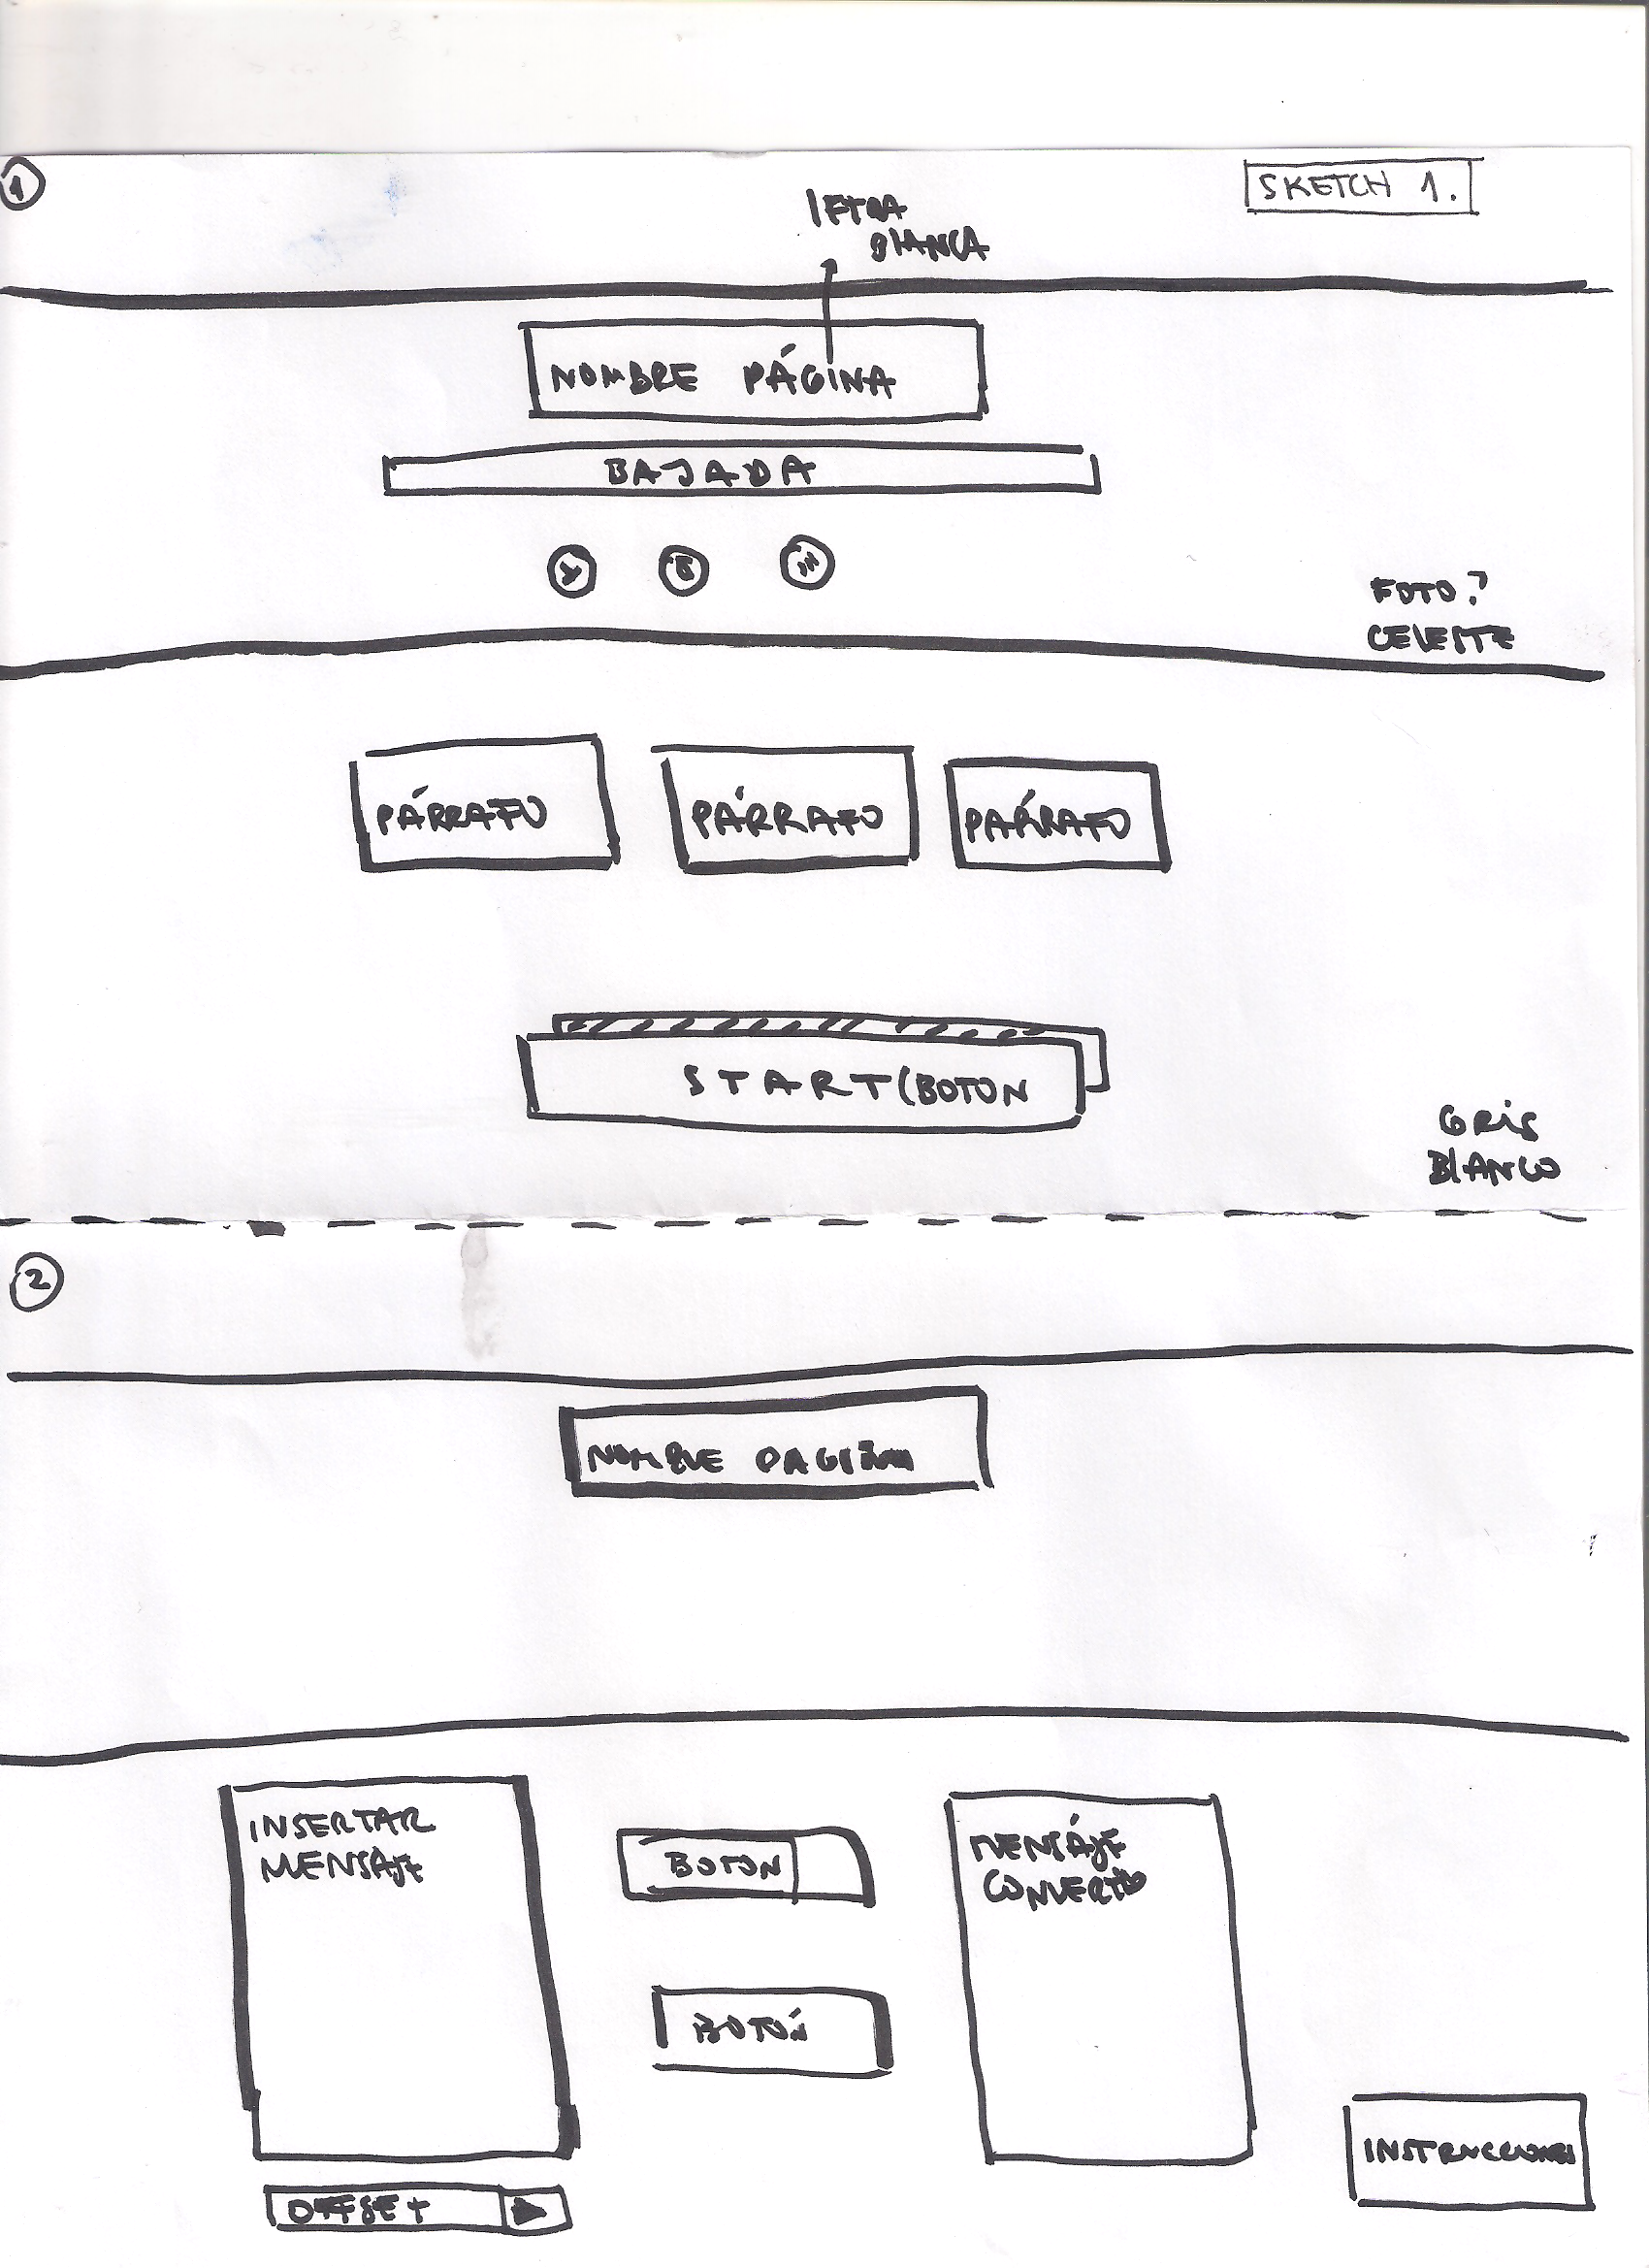 1
SKETCH 1.
LETRA
BLANCA
NOMBRE PÁGINA
BAJADA
FOTO?
CELESTE
PÁRRAFO PÁRRAFO PÁRRAFO
START (BOTON
GRIS
BLANCO
2
NOMBRE
INSERTAR
MENSAJE
BOTON
MENSÁJE
CONVERTIDO
BOTÓN
INSTRUCCIONES
OFFSET